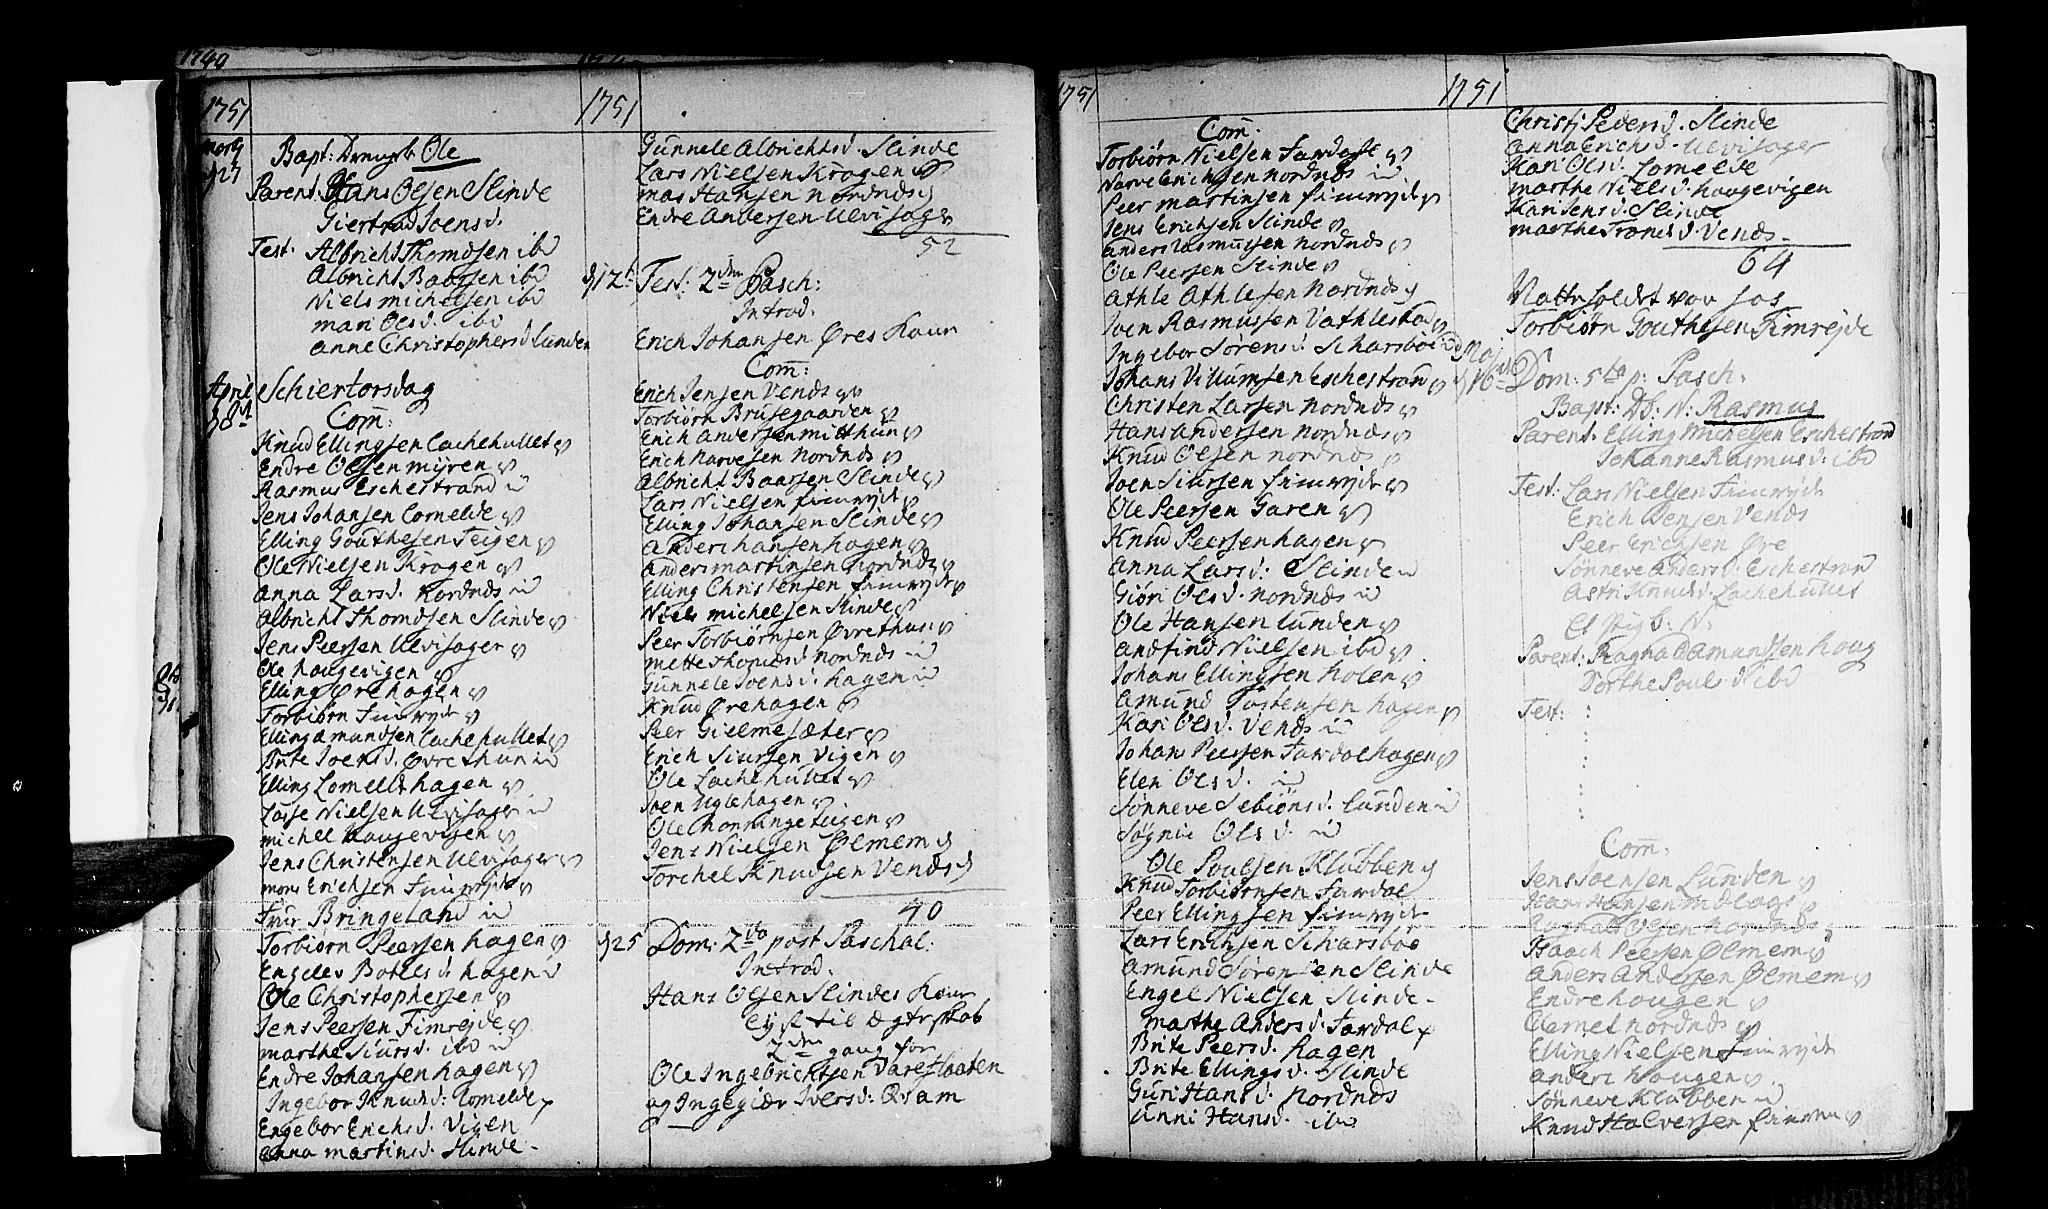 1749
1751
1751
Bapt: Drengeb. Ole
Parent: Hans Olsen Slinde
Giertrud Joensd.
Test: Albricht Thomdsen ibd
Albricht Baarsen ibd
Niels michelsen ibd
mari Olsd. ibd
anne Christophersd Lunden
April Schiertorsdag
Com:
Knud Ellingsen Lachehullet
Endre Olsen myren
Rasmus Eschestrand
Jens Johansen Lomelde
Elling Gouthesen Teigen
Ole Nielsen Krogen
anna Larsd. Nordnds
Albricht Thomdsen Slinde
Jens Peersen Ulvisager
Ole hougevigen
Elling Ørehagen
Torbiørn Fimrejde
Elling amundsen Lachehullet
Brite Joensd. Øvrethun
Elling Lomeldhagen
Lasse Nielsen Ulvisager
michel hougevigen
Jens Christensen Ulvisager
mons Erichsen Fimrejde
Bringeland
Torbiørn Peersen hagen
Engeler Botelsd. hagen
Ole Christophersen
Jens Peersen Fimrejde
marthe Siursd. ibd
Endre Johansen hagen
Ingebor Knudsd. Lomelde
Engebor Erichsd. Vigen
anna martinsd. Slinde
Gunnele Albrichtsd. Slinde
Lars Nielsen Krogen
mas Hansen Nordnds
Endre Andersen Ulvisager
52
12t Fest: 2den Pasch:
Introd.
Erich Johansen Øres Kone
Com:
Erich Jensen Vends
Torbiørn Brusegaarden
Erich andersen mitthun
Erich Narvesen Nordnds
Albricht Baarsen Slinde
Lars Nielsen fimrejde
Elling Johansen Slinde
anders hansen hagen
anders martinsen Nordnds
Elling Christensen fimrejde
Niels michelsen Slinde
Peer Torbiørnsen Øvrethun
mette thomdsd Nordnds
Gunnele Joensd. hagen
Knud Ørehagen
Peer Gielmesæter
Erich Siursen Vigen
Ole Lachehullet
Joen Uglehagen
Ole honningeteigen
Jens Nielsen Ølmem
Torchel Knudsen Vends
40
25 Dom: 2da post Paschal:
Introd.
Hans Olsen Slindes Kone
lyst til Ægteskab
2den gang for
Ole Ingebrichtsen Vareslaaten
og Ingegiær Iversd: Qvam
1751
1751
Com:
Torbiørn Nielsen Fardale
Narve Erichsen Nordnds
Peer martinsen fimrejde
Jens Erichsen Slinde
anders Rasmussen Nordnds
Ole Peersen Slinde
Athle Athlesen Nordnds
Joen Rasmussen Vathlestad
Ingebor Sørensd. Scharsboe
Johans Villumsen Eschestrand
Christen Larsen Nordnds
Hans andersen Nordnds
Knud Olsen Nordnds
Joen Siursen fimrejde
Ole Peersen Garen
Knud Peersen hagen
Anna Larsd: Slinde
Giøri Olsd. Nordnds
Ole Hansen Lunden
andfind Nielsen ibd
Johans Ellingsen holen
amund Tostensen hagen
Kari Olsd. Vends
Johans Peersen Fardalhagen
Elen Olsd.
Sønneve Sebiønsd. Lunden
Søgnie Olsd.
Ole Poulsen Klubben
Knud Torbiørnsen Fardal
Peer Ellingsen fimrejde
Lars Erichsen Scharsboe
amund Sørensen Slinde
Engel Nielsen Slinde
marthe Andersd. Fardal
Brite Peersd. hagen
Brite Ellingsd. Slinde
Guri Hansd Nordnds
Unni Hansd. ibd
Christj Pedersd. Slinde
anna Erichsd. Ulvisager
Kari Olsd. Lomelde
marthe Nielsd. hougevigen
Kari Jensd. Slinde
marthe Trondsd. Vends
64
Natte holdet var hos
Torbiørn Gouthesen Fimrejde
Maj 16 Dom: 5ta p: Pasch.
Bapt: Db: N: Rasmus
Parent. Elling Michelsen Eschestrand
Johanne Rasmusd. ibd
Test: Lars Nielsen Fimrejde
Erich Jensen Vends
Peer Erichsen Øre
Sønneve Andersd. Eschestrand
Astri Knudsd. Lachehullet
Et Pigb: N:
Parent: Ragna Damundsen houg
Dorthe Poulsd. ibd
Test:
Com:
Jens Joensen Lunden
Hans Hansen
Olsen Nordnds
Isaach Peersen Ølmem
Anders Andersen Ølmem
Endre hougen
Clemet Nordnds
Elling Nielsen fimrejde
anders hougen
Sønneve Klubben
Knud Halversen